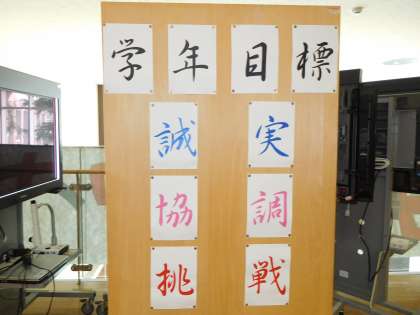 学年目標
誠実
協調
挑戦